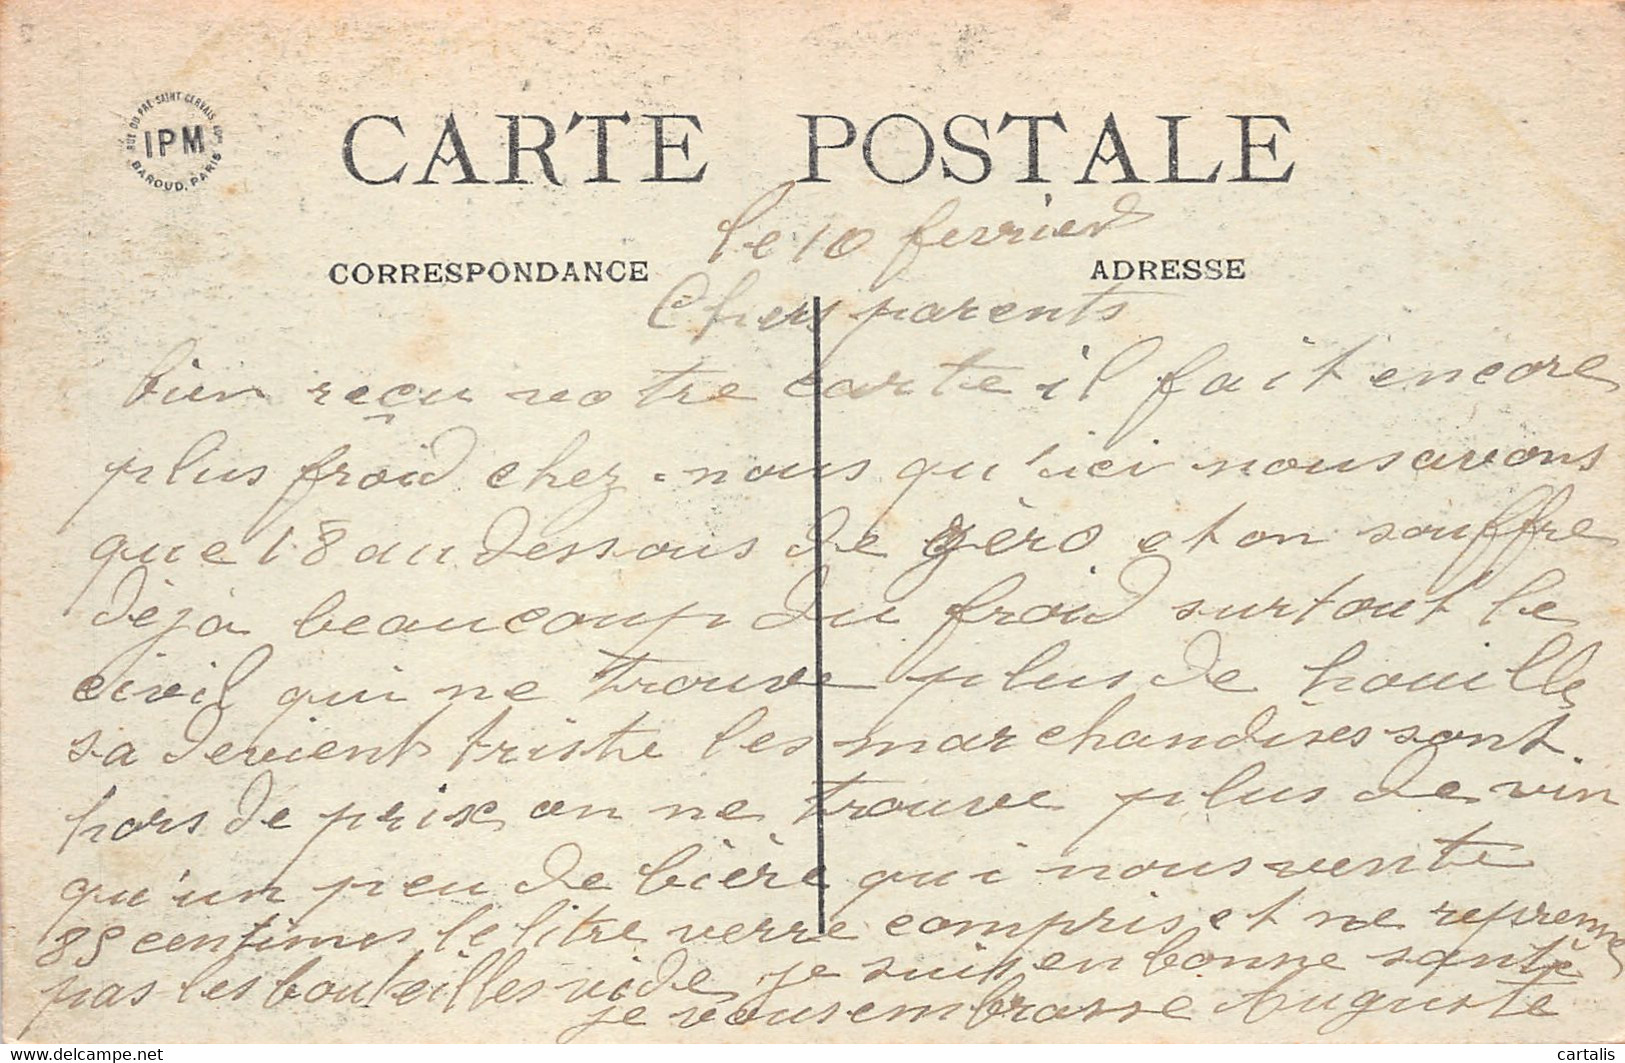 RUE DU PRÉ-SAINT-GERVAIS
IPM
BAROUD, PARIS
CARTE POSTALE
le 10 fevrier
CORRESPONDANCE
ADRESSE
Chers parents
bien reçu votre carte il fait encore
plus froid chez nous qu'ici nous avons
que 18 au dessous de zèro et on souffre
dèjà beaucoup du froid surtout le
civil qui ne trouve plus de houille
sa devient triste les marchandises sont
hors de prix on ne trouve plus de vin
qu'un peu de bière qui nous vente
85 centimes le litre verre compris et ne reprenne
pas les bouteilles vide je suis en bonne santè
je vous embrasse Auguste
cartalis
https://www.delcampe.net